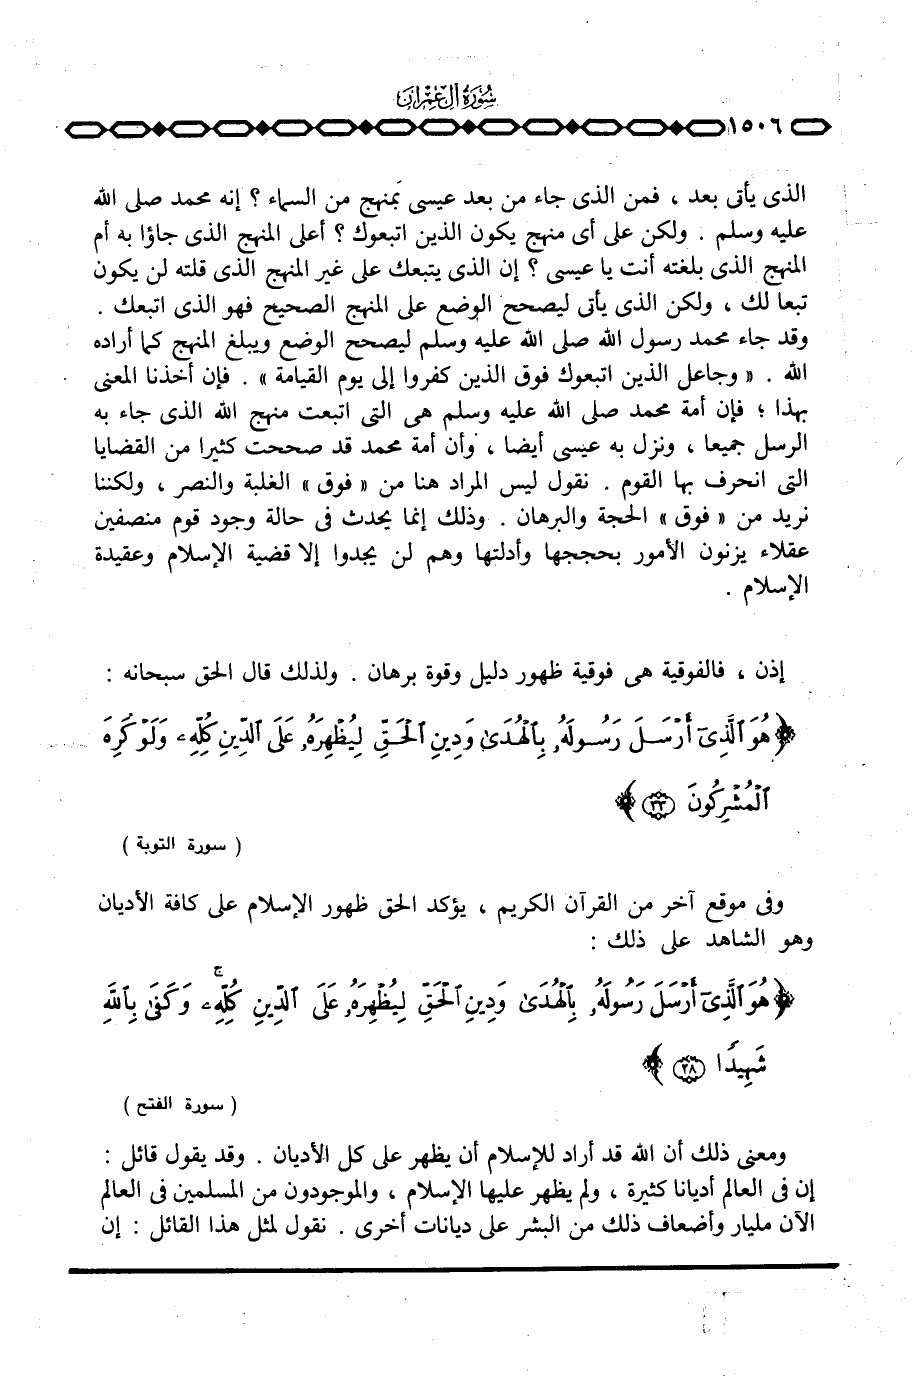 سُورَةُ آلِ عِمْرَانَ
١٥٠٦
الذى يأتى بعد ، فمن الذى جاء من بعد عيسى بمنهج من السماء ؟ إنه محمد صلى الله
عليه وسلم . ولكن على أى منهج يكون الذين اتبعوك ؟ أعلى المنهج الذى جاؤا به أم
المنهج الذى بلغته أنت يا عيسى ؟ إن الذى يتبعك على غير المنهج الذى قلته لن يكون
تبعا لك ، ولكن الذى يأتى ليصحح الوضع على المنهج الصحيح فهو الذى اتبعك .
وقد جاء محمد رسول الله صلى الله عليه وسلم ليصحح الوضع ويبلغ المنهج كما أراده
الله . « وجاعل الذين اتبعوك فوق الذين كفروا إلى يوم القيامة » . فإن أخذنا المعنى
بهذا ؛ فإن أمة محمد صلى الله عليه وسلم هى التى اتبعت منهج الله الذى جاء به
الرسل جميعا ، ونزل به عيسى أيضا ، وأن أمة محمد قد صححت كثيرا من القضايا
التى انحرف بها القوم . نقول ليس المراد هنا من « فوق » الغلبة والنصر ، ولكننا
نريد من « فوق » الحجة والبرهان . وذلك إنما يحدث فى حالة وجود قوم منصفين
عقلاء يزنون الأمور بحججها وأدلتها وهم لن يجدوا إلا قضية الإسلام وعقيدة
الإسلام .
إذن ، فالفوقية هى فوقية ظهور دليل وقوة برهان . ولذلك قال الحق سبحانه :
﴿ هُوَ ٱلَّذِىٓ أَرْسَلَ رَسُولَهُۥ بِٱلْهُدَىٰ وَدِينِ ٱلْحَقِّ لِيُظْهِرَهُۥ عَلَى ٱلدِّينِ كُلِّهِۦ وَلَوْ كَرِهَ
ٱلْمُشْرِكُونَ ٣٣ ﴾
( سورة التوبة )
وفى موقع آخر من القرآن الكريم ، يؤكد الحق ظهور الإسلام على كافة الأديان
وهو الشاهد على ذلك :
﴿ هُوَ ٱلَّذِىٓ أَرْسَلَ رَسُولَهُۥ بِٱلْهُدَىٰ وَدِينِ ٱلْحَقِّ لِيُظْهِرَهُۥ عَلَى ٱلدِّينِ كُلِّهِۦۚ وَكَفَىٰ بِٱللَّهِ
شَهِيدًا ٢٨ ﴾
( سورة الفتح )
ومعنى ذلك أن الله قد أراد للإسلام أن يظهر على كل الأديان . وقد يقول قائل :
إن فى العالم أديانا كثيرة ، ولم يظهر عليها الإسلام ، والموجودون من المسلمين فى العالم
الآن مليار وأضعاف ذلك من البشر على ديانات أخرى . نقول لمثل هذا القائل : إن